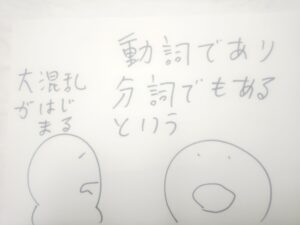 動詞であり
分詞でもある
という
大混乱
がはじ
まる